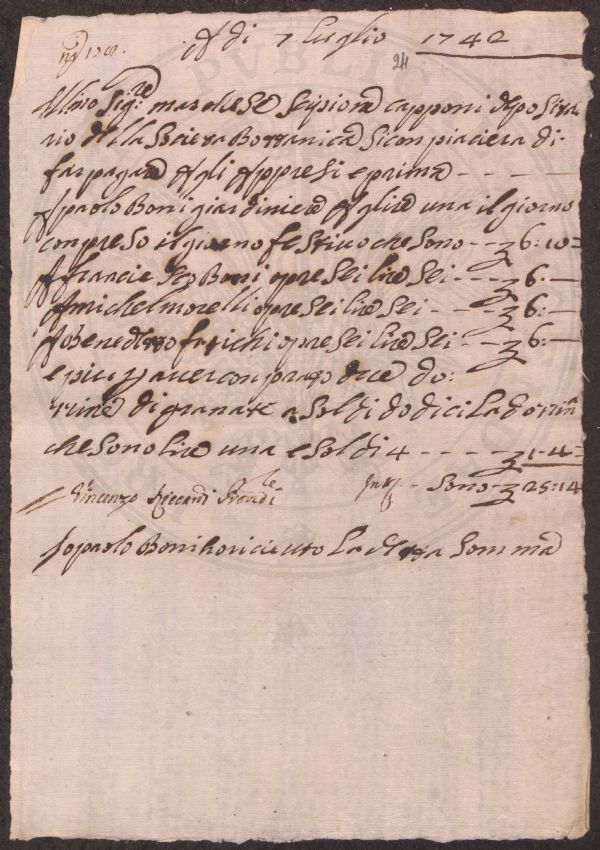 A di 7 luglio 1742
24
Ill.mo Sig:re marchese Scipione Capponi deposita
rio della Società Bottanica si conpiacera di
far pagare Agli Appresi e prima - - - -
A paolo Boni giardiniere A lire una il giorno
conpreso il giorno festivo che sono - - 6:10=
A Francie Boni opre sei lire sei - - 6:—
A michel morelli opre sei lire sei - - 6:—
A Benedetto farichi opre sei lire sei - - 6:—
e piu p aver conprato due do:
zine di granate a soldi dodici La dozina
che sono lire una e soldi 4 - - - - 1:4=
Vincenzo Riccardi Sono 25:14
Io paolo Boni ho riceuto La detta Somma